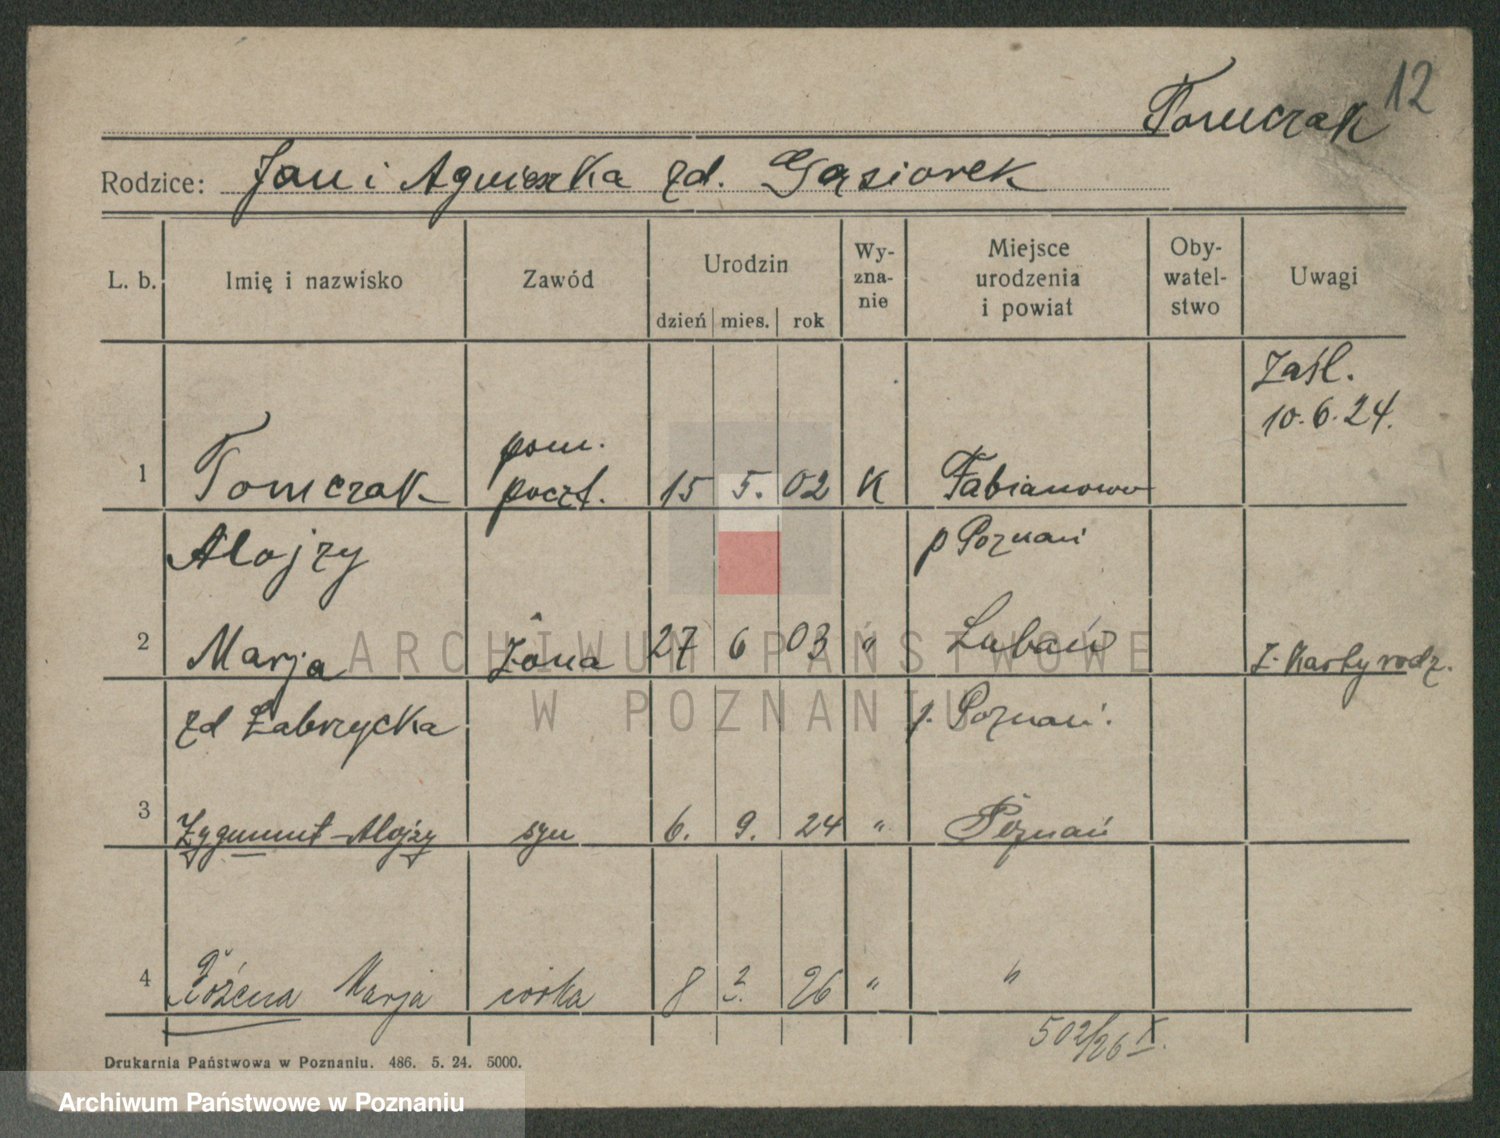 Tomczak 12
Rodzice: Jan i Agnieszka zd. Gąsiorek
L. b. Imię i nazwisko Zawód Urodzin dzień mies. rok Wy-zna-nie Miejsce urodzenia i powiat Oby-watel-stwo Uwagi
Zaśl.
10.6.24.
pom.
1 Tomczak poczt. 15 5. 02 K Fabianowo
Alojzy p Poznań
2 Marja żona 27 6 03 " Lubań z karty rodz.
zd Zabrzycka p. Poznań.
3 Zygmunt-Alojzy syn 6. 9. 24 " Poznań
4 Marja córka 8 2. 26 " "
502/26 X.
Drukarnia Państwowa w Poznaniu. 486. 5. 24. 5000.
ARCHIWUM PAŃSTWOWE
W POZNANIU
Archiwum Państwowe w Poznaniu